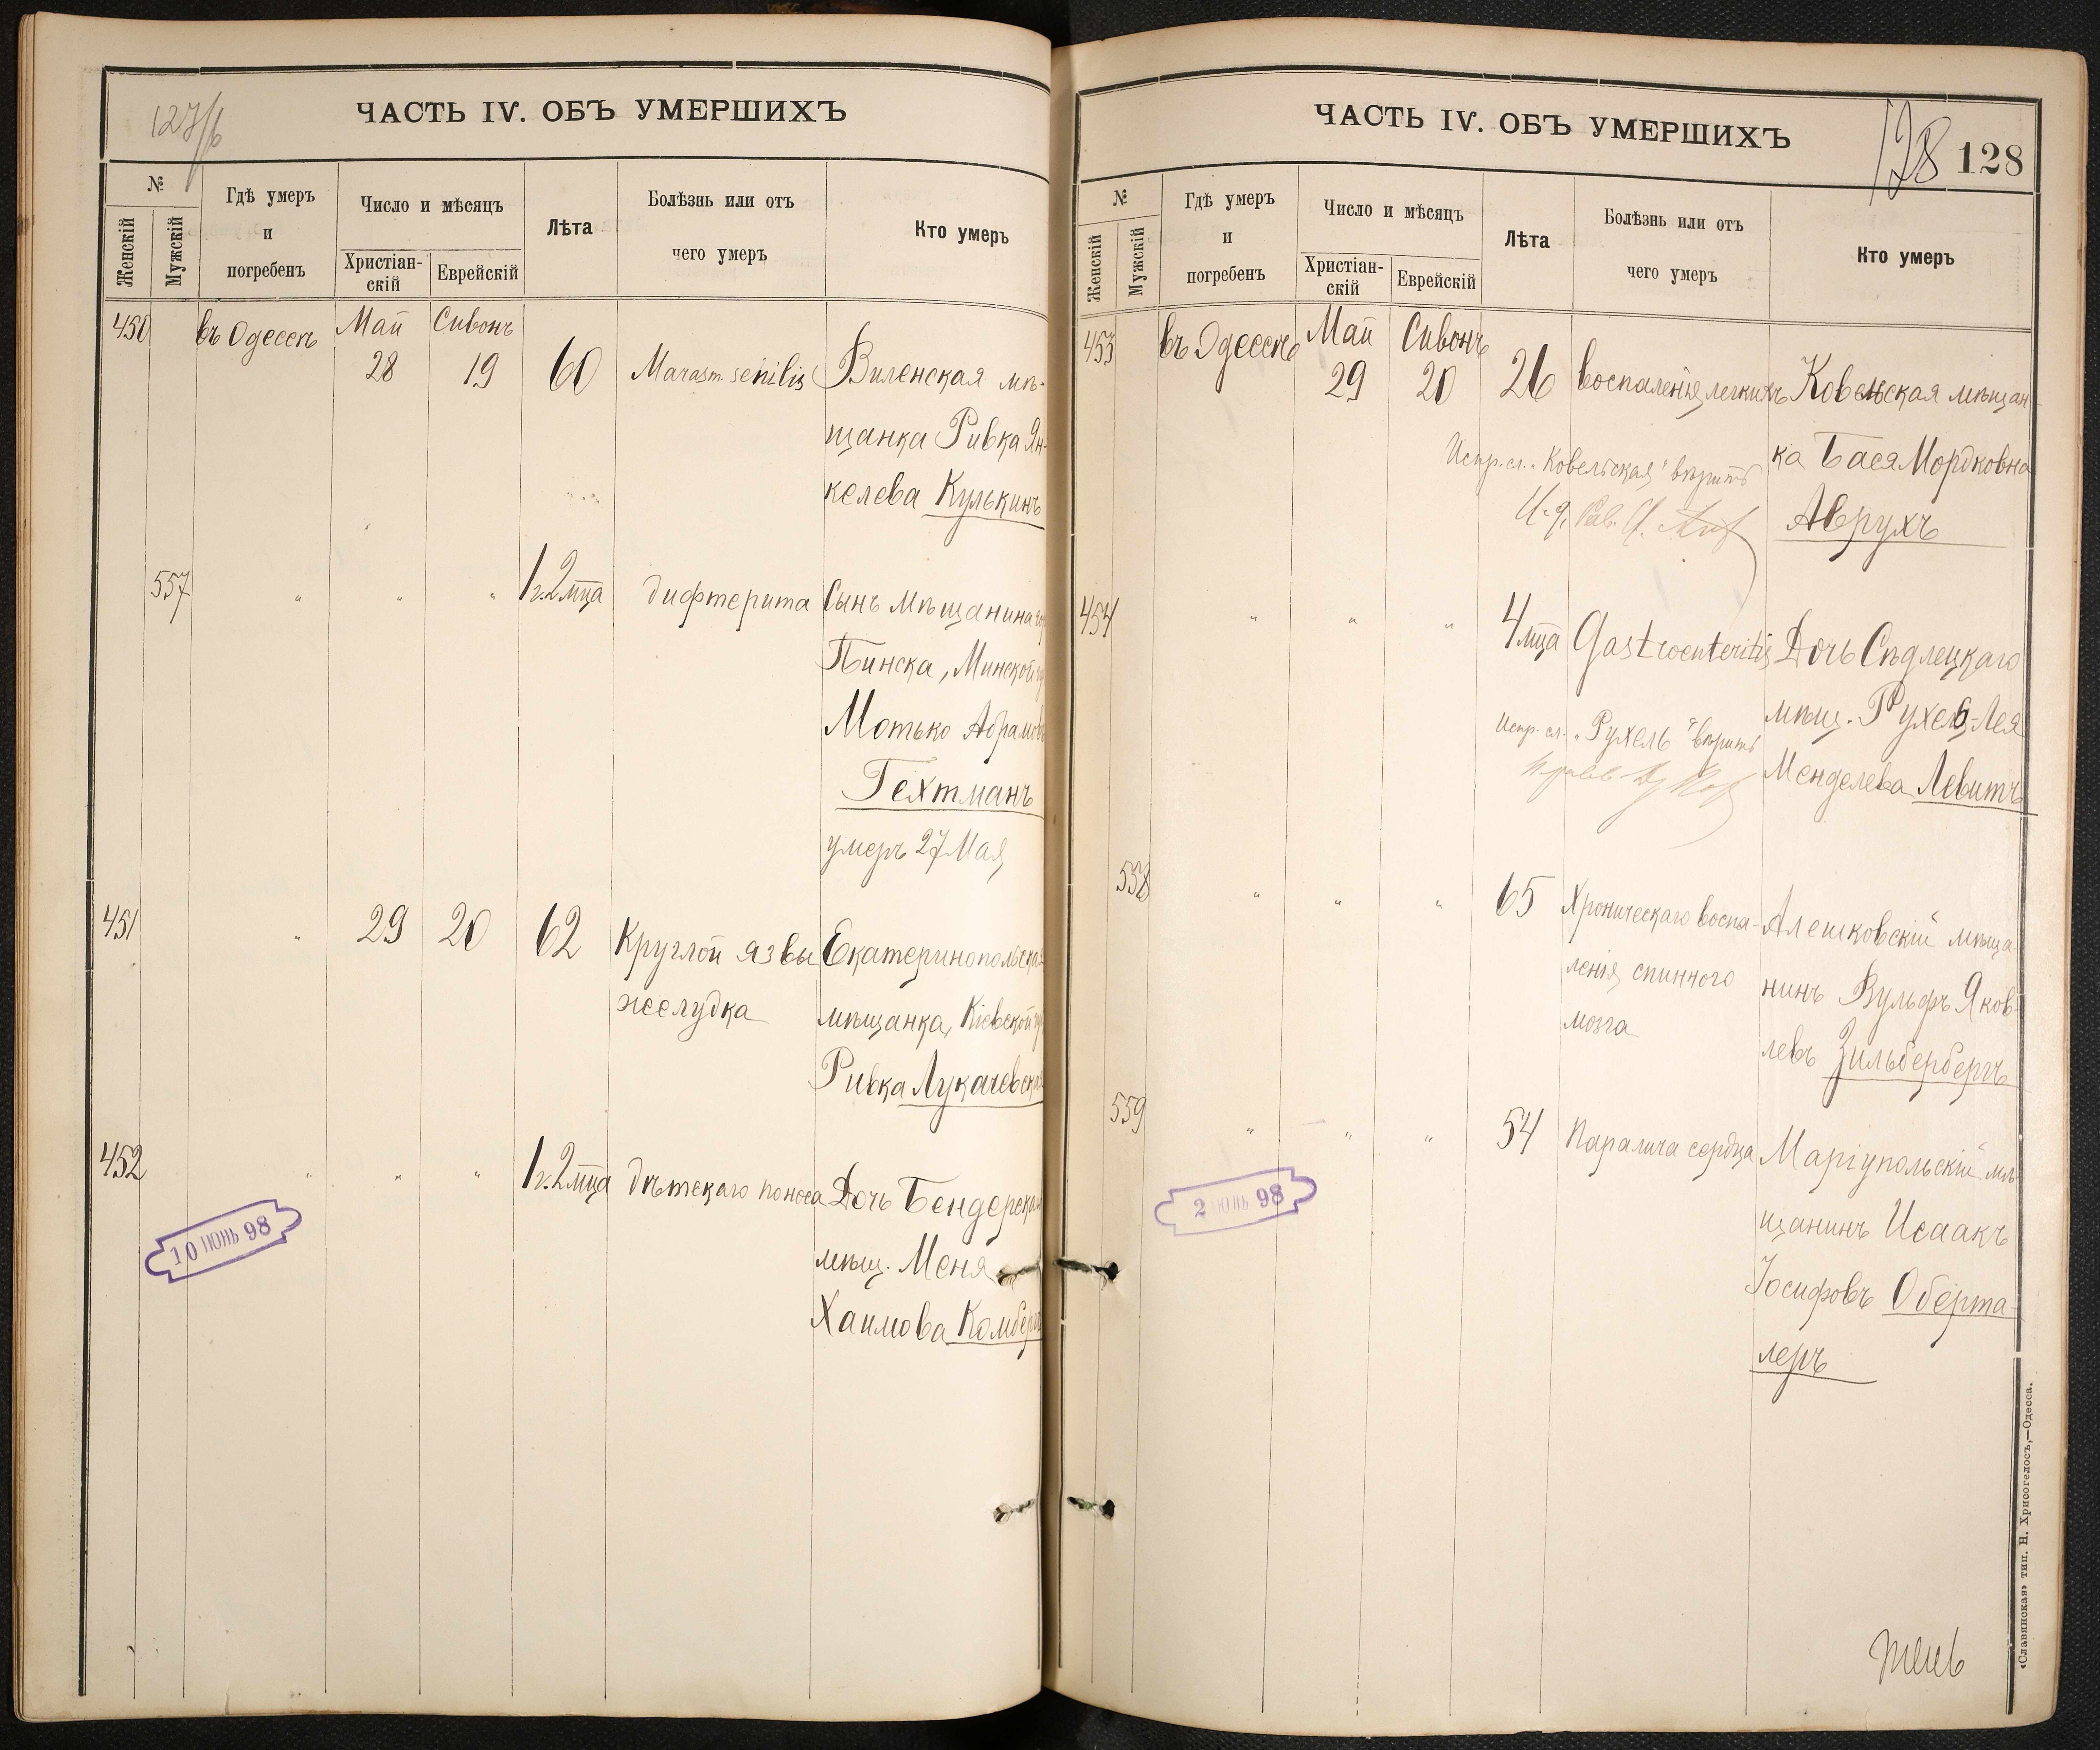 127/б
ЧАСТЬ IV. ОБЪ УМЕРШИХЪ
№
Женскій
Мужскій
Гдѣ умеръ
и
погребенъ
Число и мѣсяцъ
Христіан-
скій
Еврейскій
Лѣта
Болѣзнь или отъ
чего умеръ
Кто умеръ
450 въ Одессѣ Май Сивонъ
28 19 60 Marasm. senilis Виленская мѣ-
щанка Ривка Ян-
келева Кулькинъ
557 " " " 1 г. 2 мца дифтерита Сынъ мѣщанина
Пинска, Минской
Мотько Абрамовъ
Гехтманъ
умеръ 27 Мая
451 " 29 20 62 Круглой язвы Екатеринопольская
желудка мѣщанка, Кіевской
Ривка Лукачевская
452 " " " 1 г. 2 мца дѣтскаго поноса Дочь Бендерскаго
мѣщ. Меня
Хаимова Комбергъ
10 ІЮНЬ 98
ЧАСТЬ IV. ОБЪ УМЕРШИХЪ
128 128
№
Женскій
Мужскій
Гдѣ умеръ
и
погребенъ
Число и мѣсяцъ
Христіан-
скій
Еврейскій
Лѣта
Болѣзнь или отъ
чего умеръ
Кто умеръ
453 въ Одессѣ Май Сивонъ
29 20 26 воспаленія легкихъ Ковельская мѣщан-
ка Бася Мордковна
Испр. сл. "Ковельская" вѣрить
И. д. Рав.
Аврухъ
454 " " " 4 мца Gastroenteritis Дочь Сѣдлецкаго
мѣщ. Рухель-Лея
Испр. сл. "Рухель" вѣрить
Менделева Левитъ
558 " " " 65 Хроническаго воспа- Алешковскій мѣща-
ленія спинного нинъ Вульфъ Яков-
мозга левъ Зильбербергъ
559 " " " 54 Паралича сердца Маріупольскій мѣ-
щанинъ Исаакъ
Іосифовъ Оберта-
леръ
2 ІЮНЬ 98
«Славянская» тип. Н. Хрисогелосъ,—Одесса.